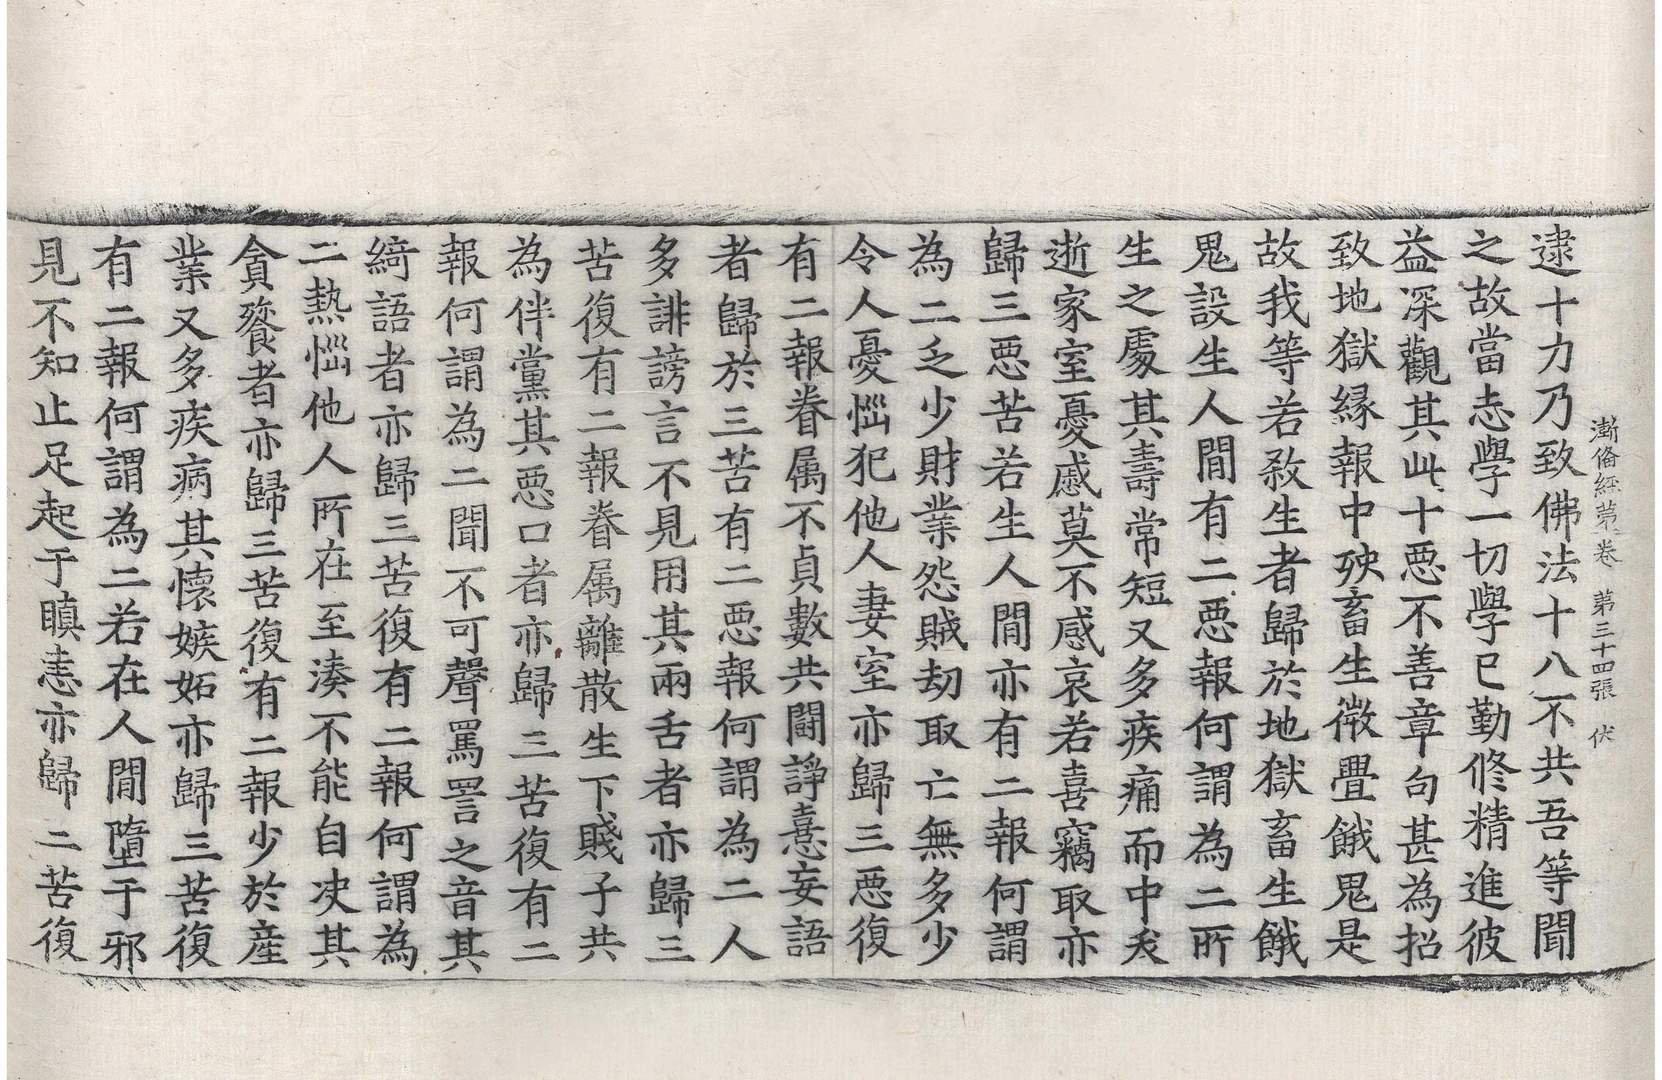 漸俻經第一卷　第三十四張　伏
逮十力乃致佛法十八不共吾等聞
之故當志學一切學已勤修精進彼
益深觀其此十惡不善章句甚為招
致地獄緣報中殃畜生微畳餓鬼是
故我等若殺生者歸於地獄畜生餓
鬼設生人間有二惡報何謂為二所
生之處其壽常短又多疾痛而中夭
逝家室憂慼莫不感哀若喜竊取亦
歸三惡苦若生人間亦有二報何謂
為二乏少財業怨賊劫取亡無多少
令人憂惱犯他人妻室亦歸三惡復
有二報眷属不貞數共鬪諍憙妄語
者歸於三苦有二惡報何謂為二人
多誹謗言不見用其兩舌者亦歸三
苦復有二報眷属離散生下賤子共
為伴黨其惡口者亦歸三苦復有二
報何謂為二聞不可聲罵詈之音其
綺語者亦歸三苦復有二報何謂為
二熱惱他人所在至湊不能自决其
貪餮者亦歸三苦復有二報少於產
業又多疾病其懷嫉妬亦歸三苦復
有二報何謂為二若在人間墮于邪
見不知止足起于瞋恚亦歸二苦復